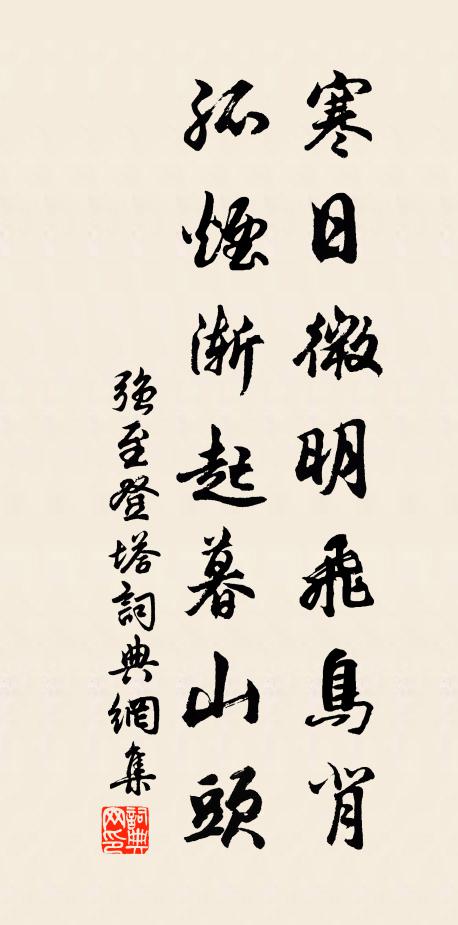 寒日微明飛鳥背
孤煙漸起暮山頭
強至登塔詞典網集
詞典
网印